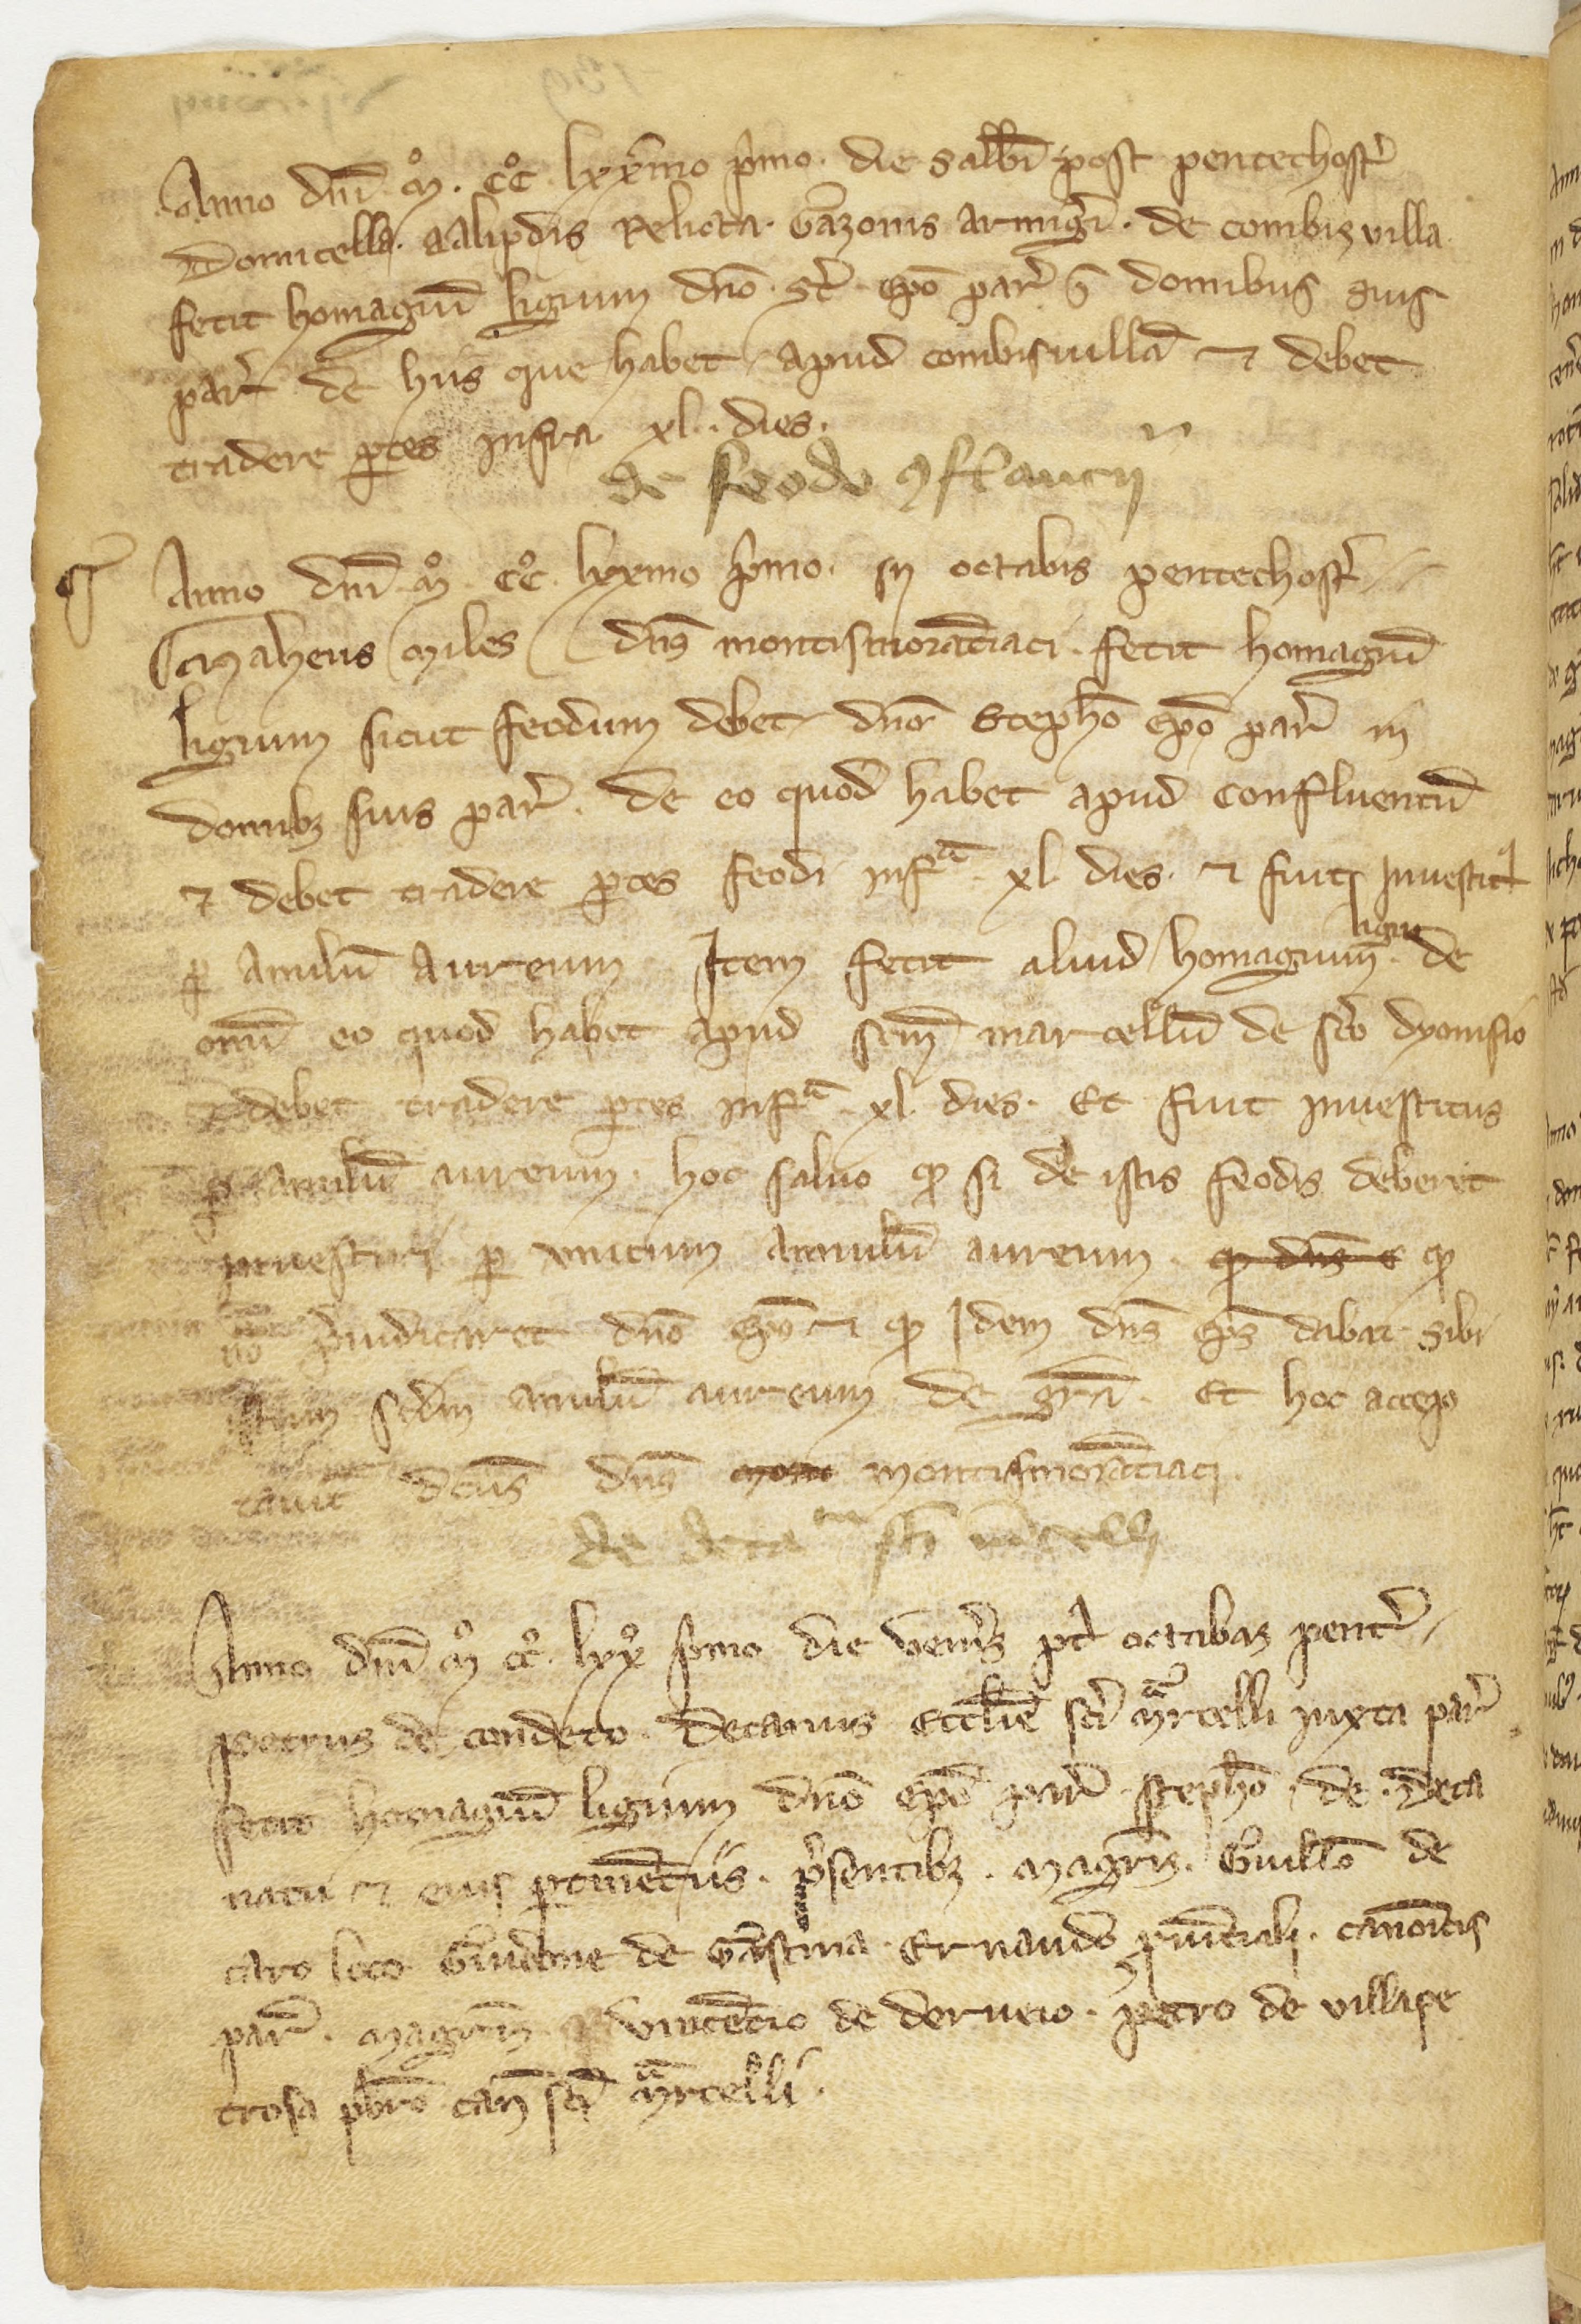 Anno dn̄i .mͦ. ccͦ. lxx̄mo p̾mo. die sabb̄i post pentechost̾
Domicella. aalipdis relicta. Gazonis armig̾i. de combis villa
fecit homagiū ligium dn̄o .st̾. ep̄o par̾ ī domibus suis
par̾ de hiis que habet apud combisvillā ⁊ debet
tradere ꝑtes infra xl. dies.
de feodo ꝯflancii
Anno dn̄i mͦ ccͦ lxxmo p̾mo. in octabis pentechost̾
Maheus miles dn̄s montismorāciaci. fecit homagiū
ligium sicut feodum debet dn̄o Stephō ep̄o par̾ in
domibꝫ suis par̾. de eo quod habet apud confluentū
⁊ debet tradere ꝑtes feodi infᵃ xl dies. ⁊ fuit investitꝰ
ꝑ anulū aureum Item fecit aliud homagium ligiū de
om̄i eo quod habet apud sc̄m marcellū de sc̄o dyonisio
⁊ debet tradere ꝑtes infᵃ xl dies. Et fuit investitus
ꝑ anulū aureum. hoc salvo ꝙ si de istis feodis deberet
investiri ꝑ unicum annulū aureum. ꝙ dn̄s e ꝙ
nō p̾iudicaret dn̄o ep̄o ⁊ ꝙ Idem dn̄s ep̄s dabat sibi
istum sc̄dm anulū aureum de gr̄a. Et hoc accep
tavit dc̄us dn̄s mont montismorāciaci.
de deca tu sc̄i m̄celli
Anno dn̄i mͦ ccͦ. lxxͦ p̾mo die ven̾is pꝰt octabas pent̾
petrus de condeto. decanus eccl̄ie sc̄i mᵃrcelli iuxta par̾
fecit homagiū ligium dn̄o ep̄o par̾ stephō de deca
natu ⁊ eius ꝑtinēciis. p̾sentibꝫ. magr̄is. Guillō de
caro loco Guidone de Gastina. Ernaudo ꝓvīciali. canonicis
par̾. magr̄is vincēcio de derneio. petro de villape
trosa pb̄ro can̄ sc̄i mᵃrcelli.